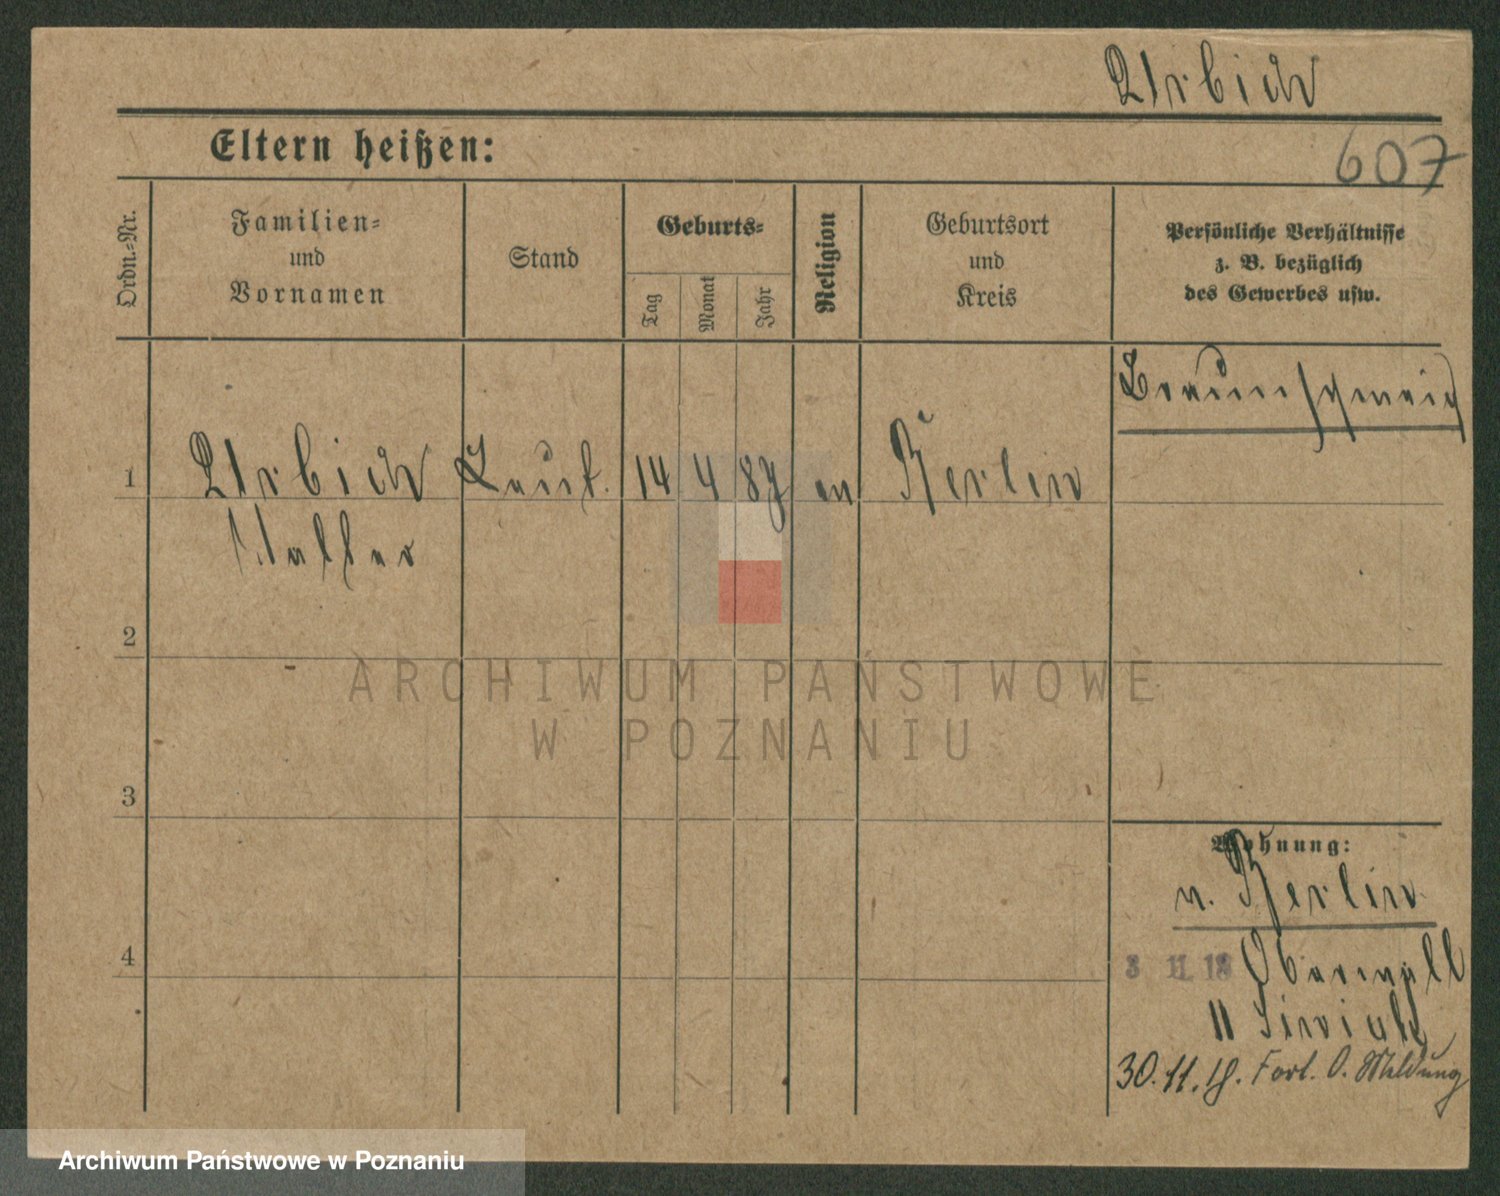 Urbich
Eltern heißen:
607
Ordn.-Nr.
Familien-
und
Vornamen
Stand
Geburts-
Tag
Monat
Jahr
Religion
Geburtsort
und
Kreis
Persönliche Verhältnisse
z. B. bezüglich
des Gewerbes usw.
Braunschweig
1
Urbich
14 4 87
Berlin
2
3
4
Wohnung:
n. Berlin
3 11 18
Oberwall
11
30.11.18. Fort. O. Meldung
ARCHIWUM PAŃSTWOWE
W POZNANIU
Archiwum Państwowe w Poznaniu